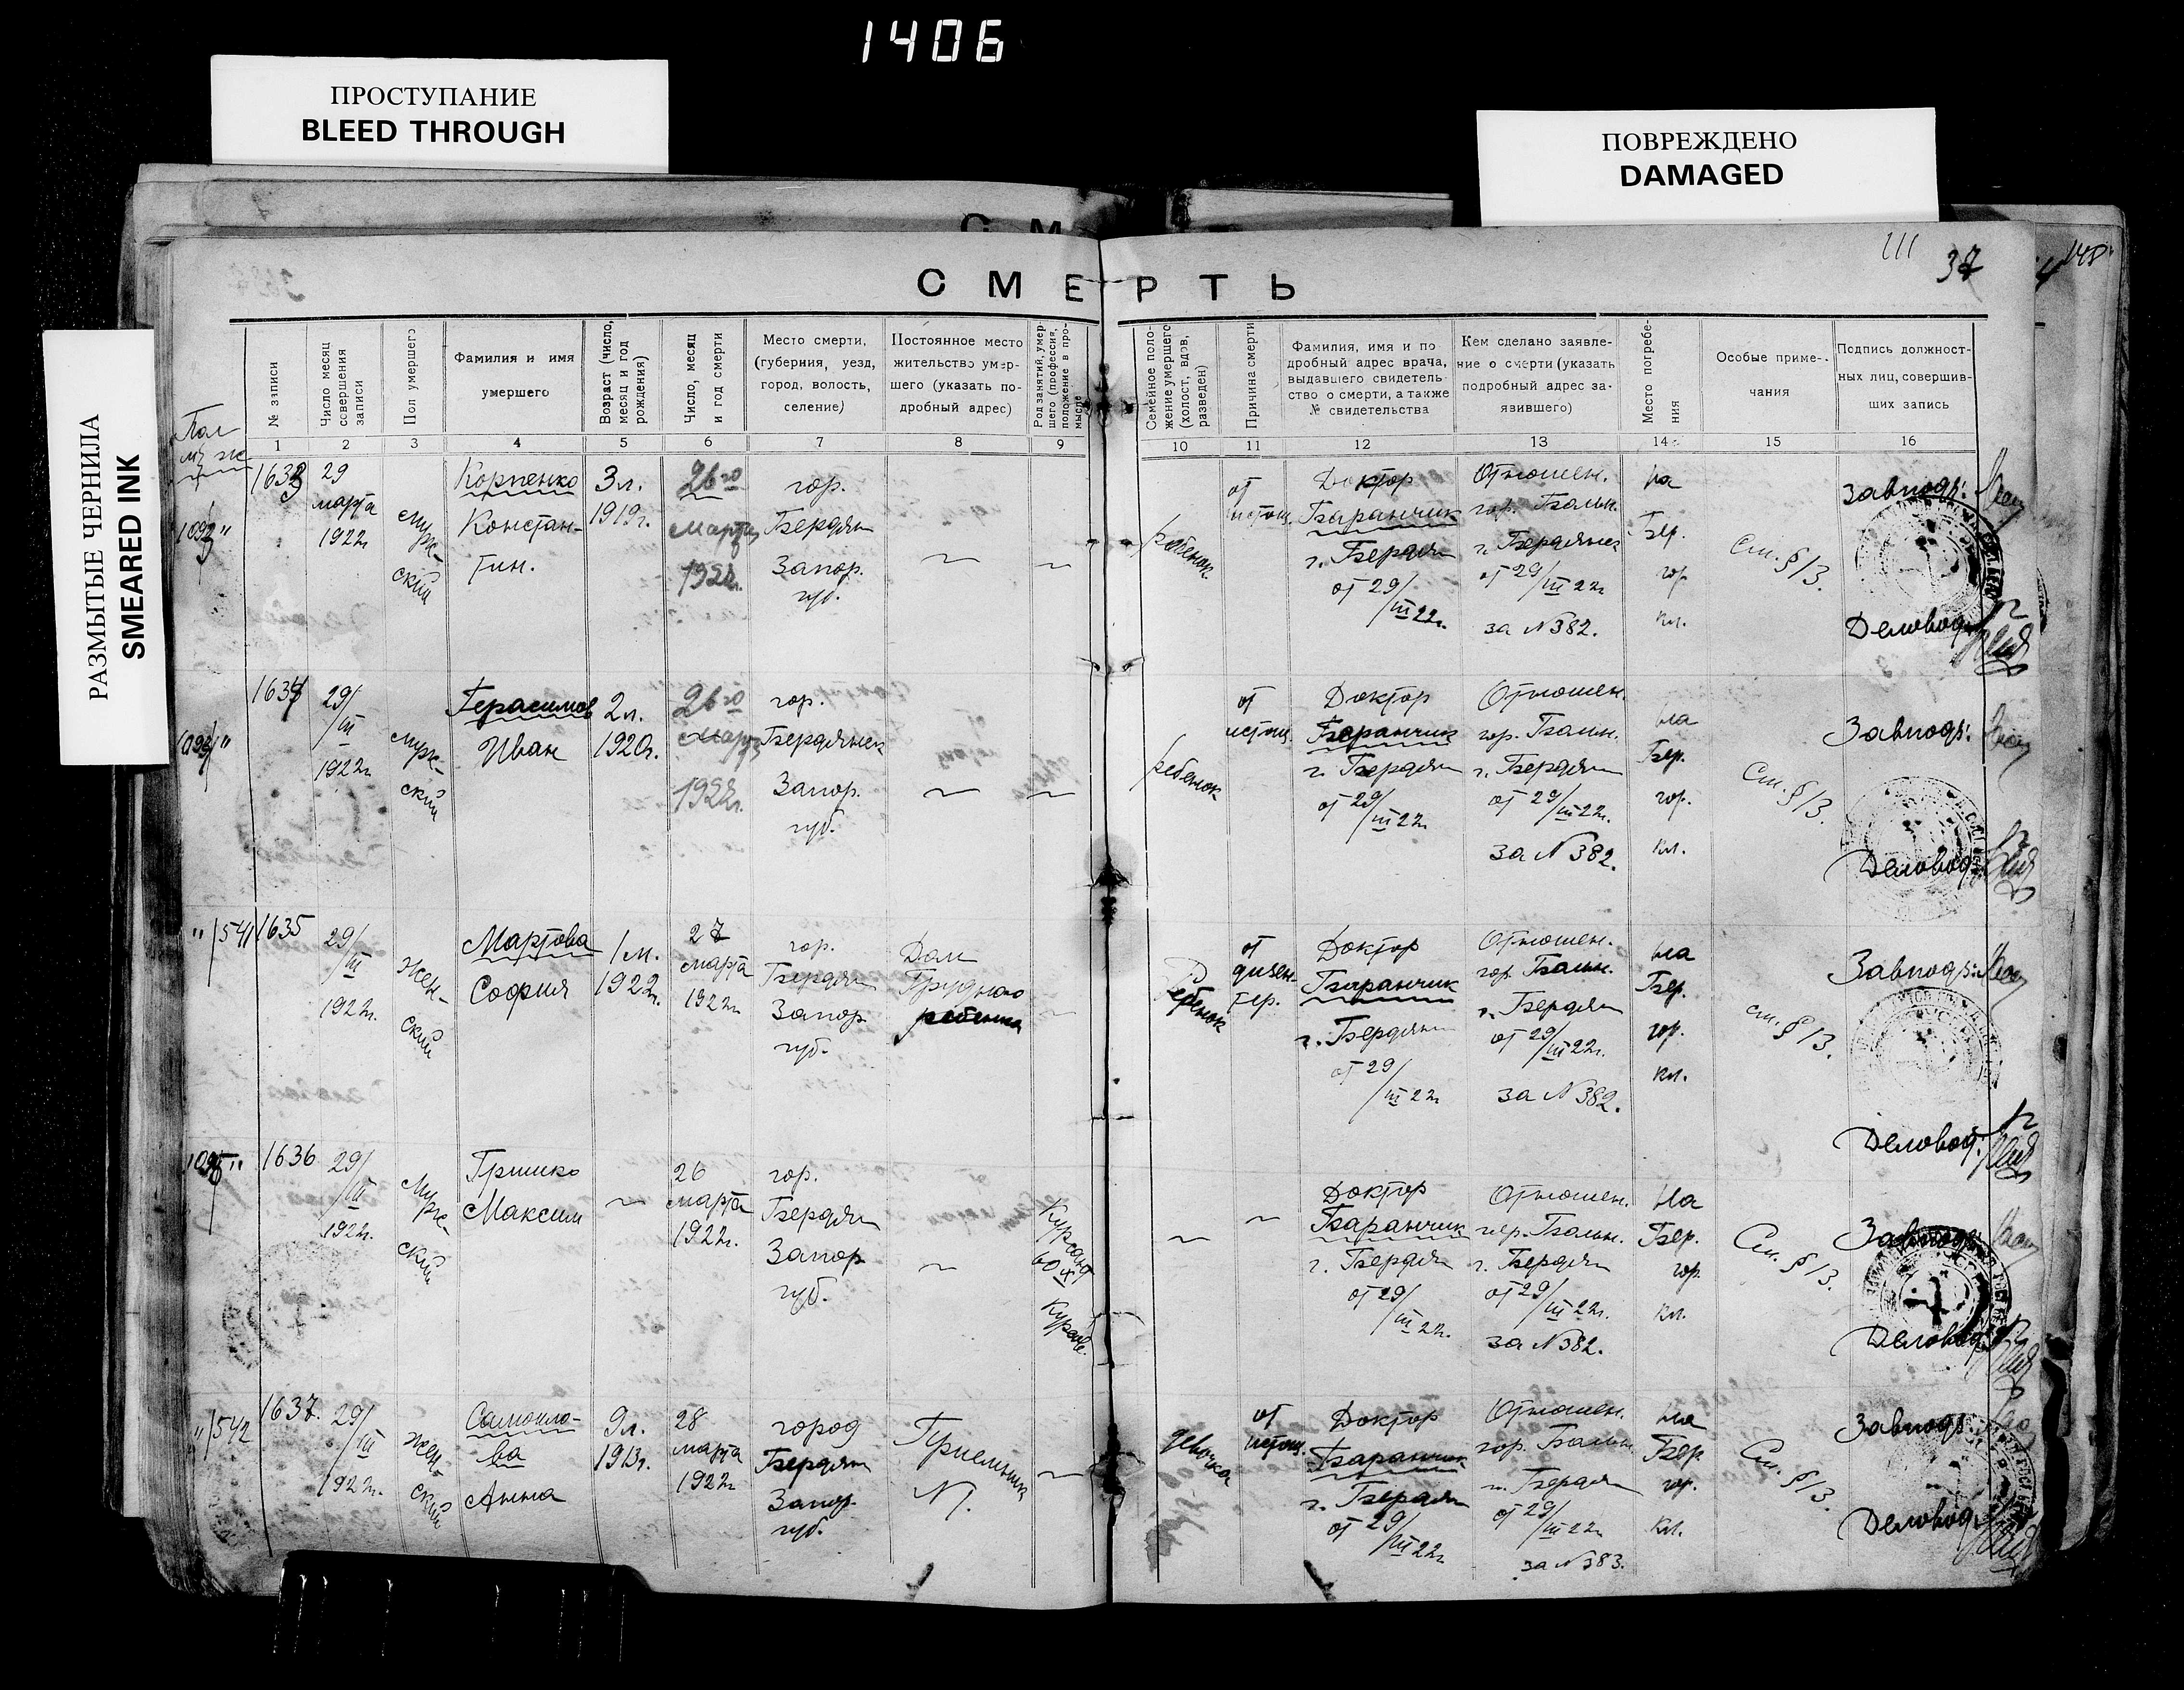 1406
ПРОСТУПАНИЕ
BLEED THROUGH
ПОВРЕЖДЕНО
DAMAGED
РАЗМЫТЫЕ ЧЕРНИЛА
SMEARED INK
111
37
148
СМЕРТЬ
Пол
м. ж
№ записи
Число месяц совершения записи
Пол умершего
Фамилия и имя
умершего
Возраст (число, месяц и год рождения)
Число, месяц и год смерти
Место смерти,
(губерния, уезд,
город, волость,
селение)
Постоянное место
жительство умер-
шего (указать по-
дробный адрес)
Род занятий, умер-
шего (профессия,
положение в про-
мысле
Семейное поло-
жение умершего
(холост, вдов,
разведен)
Причина смерти
Фамилия, имя и по
дробный адрес врача,
выдавшего свидетель
ство о смерти, а также
№ свидетельства
Кем сделано заявле-
ние о смерти (указать
подробный адрес за-
явившего)
Место погребе-
ния
Особые приме-
чания
Подпись должност-
ных лиц, совершив-
ших запись
1 2 3 4 5 6 7 8 9 10 11 12 13 14 15 16
1633
29
марта
1922г
муж-
ский
Корпенко
Констан-
тин.
3л.
1919г.
26го
марта
1922г.
гор.
Бердян
Запор.
губ.
ребенок
от
истощ.
Доктор
Баранчик
г. Бердян
от 29/III 22г.
Отношен.
гор. Больн.
г. Бердянск
от 29/III 22г
за № 382.
на
Бер.
гор
кл.
См. § 13.
Завподг:
Деловод:
1634
29/III
1922г
муж-
ский
Герасимов
Иван
2л.
1920г.
26го
марта
1922г.
гор.
Бердянск
Запор.
губ.
ребенок
от
истощ.
Доктор
Баранчик
г. Бердян
от 29/III 22г
Отношен.
гор. Больн.
г. Бердян
от 29/III 22г.
за № 382.
на
Бер.
гор.
кл.
См. § 13.
Завподг:
Деловод:
" 541
1635
29/III
1922г.
Жен-
ский
Мартова
София
1м.
1922г.
27
марта
1922г
гор.
Бердян
Запор
губ.
Дом
Грудного
ребенка
Ребенок
от
дизен-
тер.
Доктор
Баранчик
г. Бердян
от 29/III 22г
Отношен.
гор. Больн.
г. Бердян
от 29/III 22г.
за № 382.
на
Бер.
гор.
кл.
см. § 13.
Завподг:
Деловод:
1636
29/III
1922г.
Муж-
ский
Гришко
Максим
26
марта
1922г.
гор.
Бердян
Запор
губ.
Курсант
60х
Доктор
Баранчик
г. Бердян
от 29/III 22г.
Отношен.
гор. Больн.
г. Бердян
от 29/III 22г.
за № 382.
На
Бер.
гор.
кл.
См. § 13.
Завподг:
Деловод:
" 542
1637.
29/III
1922г.
жен-
ский
Самойло-
ва
Анна
9л.
1913г.
28
марта
1922г
город
Бердян
Запор.
губ.
девочка
от
истощ.
Доктор
Баранчик
г. Бердян
от 29/III 22г
Отношен.
гор. Больн.
г. Бердян
от 29/III 22г
за № 383.
на
Бер
гор.
кл.
См. § 13.
Завподг:
Деловод: